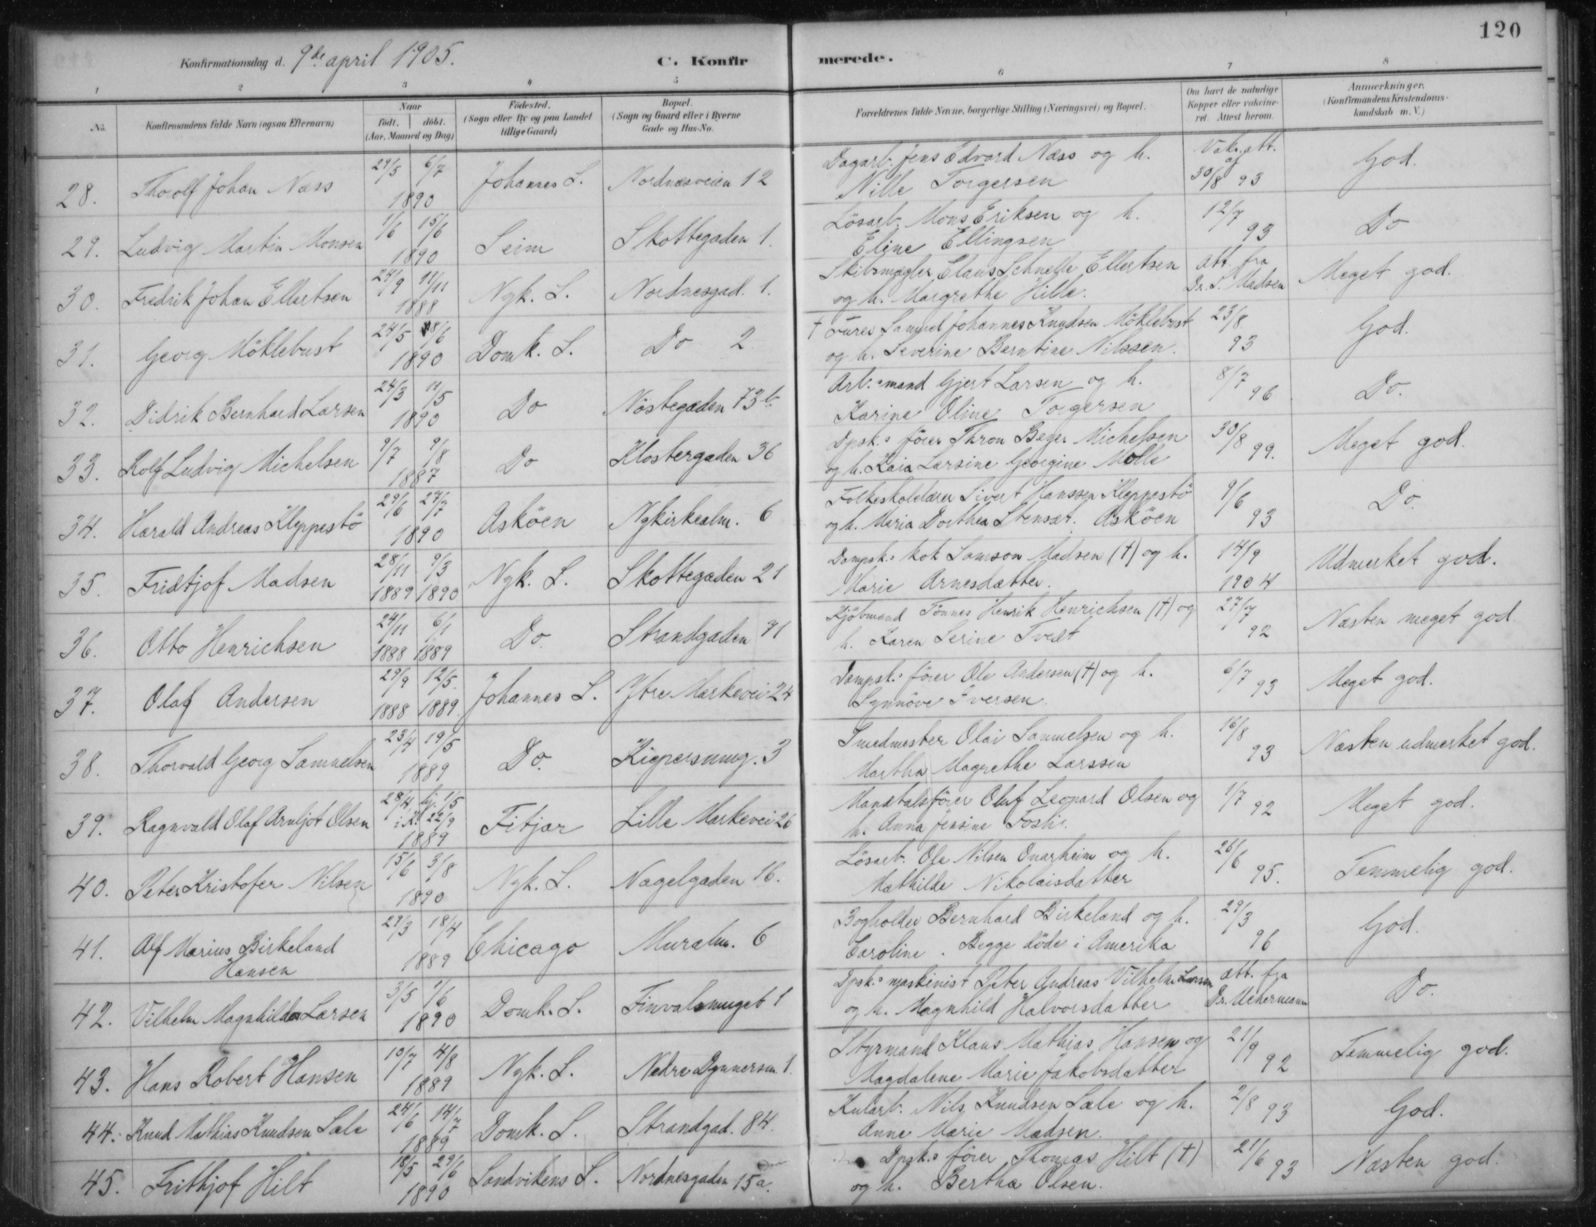 120
Konfirmationsdag d. 9de april 1905.
C. Konfirmerede.
1 2 3 4 5 6 7 8
No. Konfirmandens fulde Navn (ogsaa Efternavn) Naar født. døbt. (Aar, Maaned og Dag) Fødested. (Sogn eller By og paa Landet tillige Gaard) Bopæl. (Sogn og Gaard eller i Byerne Gade og Hus-No. Forældrenes fulde Navne, borgerlige Stilling (Næringsvei) og Bopæl. Om havt de naturlige Kopper eller vaccineret. Attest herom. Anmærkninger. (Konfirmandens Kristendomskundskab m. V.)
28. Thoolf Johan Næss 29/5 6/7 1890 Johannes S. Nordnæsveien 12 Dagarb. Jens Edvard Næss og h. Nille Torgersen Vak. att. af 30/8 93 God.
29. Ludvig Martin Monsen 1/6 15/6 1890 Seim Skottegaden 1. Løsarb. Mons Eriksen og h. Eline Ellingsen 12/7 93 Do
30. Fredrik Johan Ellertsen 24/9 11/11 1888 Nyk. S. Nordnesgad. 1. Skibsmægler Claus Schnelle Ellertsen og h. Margrethe Hille. Att. fra Dr. S. Madsen Meget god.
31. Georg Møklebust 24/5 28/6 1890 Domk. S. Do 2 † Samuel Johannes Knudsen Møklebust og h. Severine Berntine Nilssen. 23/8 93 God.
32. Didrik Bernhard Larsen 24/3 11/5 1890 Do Nøstegaden 73 b. Arb.mand Gjert Larsen og h. Karine Oline Torgersen 8/7 96 Do.
33. Rolf Ludvig Michelsen 9/7 9/8 1887 Do Klostergaden 36 Dpsk. fører Thron Beger Michelsen og h. Kaia Larsine Georgine Mølle 30/8 99. Meget god.
34. Harald Andreas Kleppestø 29/6 27/7 1890 Askøen Nykirkealm. 6 Folkeskolelærer Sivert Hanssen Kleppestø og h. Maria Dorthea Stensæt. Askøen 9/6 93 Do.
35. Fridtjof Madsen 28/11 9/3 1889 1890 Nyk. S. Skottegaden 21 Dampsk. kok Samson Madsen (†) og h. Marie Arnesdatter. 14/9 1904 Udmerket god.
36. Otto Henrichsen 24/11 6/1 1888 1889 Do. Strandgaden 91 Kjøbmand Tønnes Henrik Henrichsen (†) og h. Karen Serine Tvedt 27/7 92 Næsten meget god.
37. Olaf Andersen 29/9 12/5 1888 1889. Johannes S. Ytre Markevei 24 Dampsk. fører Ole Andersen (†) og h. Synnøve Iversen 6/7 93 Meget god.
38. Thorvald Georg Samuelsen 23/4 19/5 1889 Do. Kippersmug. 3 Smedmester Olai Samuelsen og h. Martha Magrethe Larssen 16/8 93 Næsten udmerket god.
39. Ragnvald Olaf Arnljot Olsen 28/4 hj. 1/5 i K. 22/9 1889 Fitjar Lille Markevei 26 Mandtalsfører Oluf Leonard Olsen og h. Anna Jensine 1/7 92 Meget god.
40. Peter Kristofer Nilsen 15/6 3/8 1890 Nyk. S. Nagelgaden 16. Løsarb. Ole Nilsen Onarheim og h. Mathilde Nikolaisdatter 26/6 95. Temmelig god.
41. Alf Marius Birkeland Hansen 29/3 18/4 1889 Chicago Muralm. 6 Bogholder Bernhard Birkeland og h. Caroline. Begge døde i Amerika 29/3 96 God.
42. Vilhelm Magnhildor Larsen 3/5 1/6 1890 Domk. S. Finvalsmuget 1 Dpsk. maskinist Peter Andreas Vilhelm Larsen og h. Magnhild Halvorsdatter Att. fra Dr. Uchermann Do.
43. Hans Robert Hansen 13/7 4/8 1889 Nyk. S. Nedre Dynnersm. 1. Styrmand Klaus Mathias Hansen og Magdalene Marie Jakobsdatter 21/9 92 Temmelig god.
44. Knud Mathias Knudsen Sæle 24/6 14/7 1889 Domk. S. Strandgad. 84. Kularb. Nils Knudsen Sæle og h. Anne Marie Madsen. 2/8 93 God.
45. Frithjof Hilt 18/5 29/6 1890 Sandvikens S. Nordnesgaden 15a. Dpsk. fører Thomas Hilt (†) og h. Bertha Olsen. 21/6 93 Næsten god.